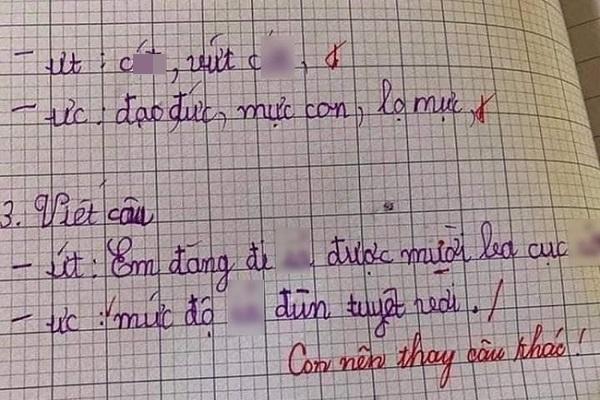 - ứt : c, vứt c,
- ức : đạo đức, mực con, lọ mực,
3. Viết câu
- ứt : Em đang đi được mười ba cục
- ức : mức độ đũn tuyệt rơi.
Con nên thay câu khác!